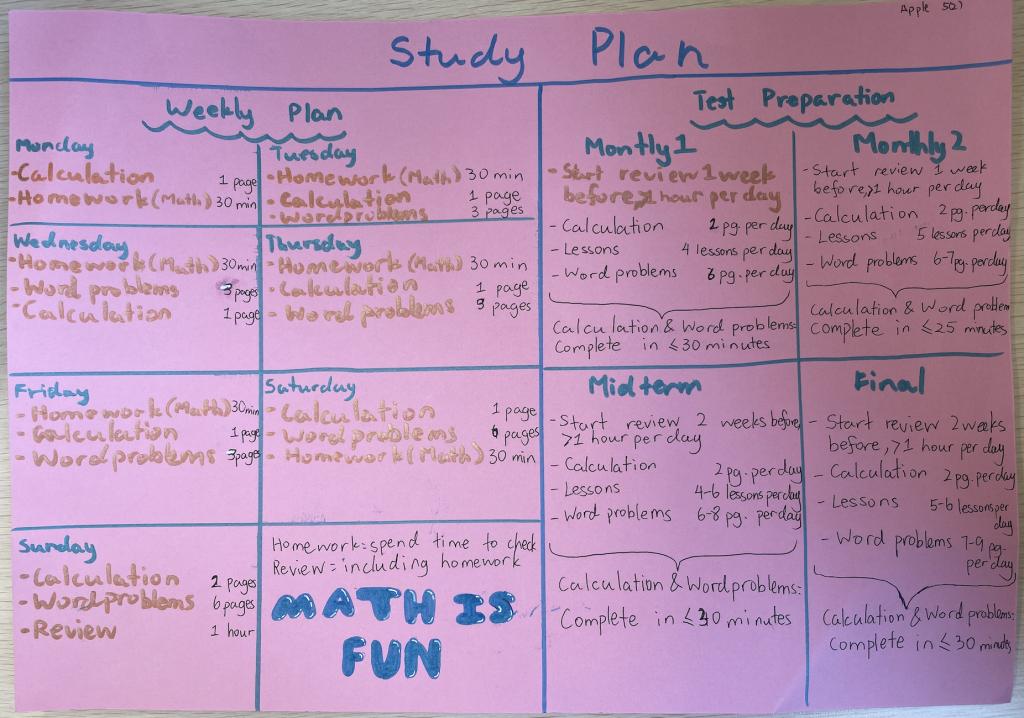 Apple 507
Study Plan
Weekly Plan
Monday
-Calculation 1 page
-Homework (Math) 30 min
Tuesday
-Homework (Math) 30 min
-Calculation 1 page
-Wordproblems 3 pages
Wednesday
-Homework (Math) 30min
-Word problems 3 pages
-Calculation 1 page
Thursday
-Homework (Math) 30 min
-Calculation 1 page
-Word problems 3 pages
Friday
-Homework (Math) 30min
-Calculation 1 page
-Word problems 3 pages
Saturday
-Calculation 1 page
-Word problems 6 pages
-Homework (Math) 30 min
Sunday
-Calculation 2 pages
-Wordproblems 6 pages
-Review 1 hour
Homework:spend time to check
Review=including homework
MATH IS
FUN
Test Preparation
Montly 1
-Start review 1 week
before,>1 hour per day
-Calculation 2 pg. per day
-Lessons 4 lessons per day
-Word problems 6 pg. per day
Calculation & Word problems:
Complete in ≤30 minutes
Monthly 2
-Start review 1 week
before,>1 hour per day
-Calculation 2 pg. per day
-Lessons 5 lessons per day
-Word problems 6-7pg. per day
Calculation & Word problem
Complete in ≤25 minutes
Midterm
-Start review 2 weeks before,
>1 hour per day
-Calculation 2 pg. per day
-Lessons 4-6 lessons per day
-Word problems 6-8 pg. per day
Calculation & Wordproblems:
Complete in ≤ minutes
Final
-Start review 2 weeks
before, >1 hour per day
-Calculation 2 pg. per day
-Lessons 5-6 lessons per
day
-Word problems 7-9 pg.
per day
Calculation & Word problems:
Complete in ≤30 minutes